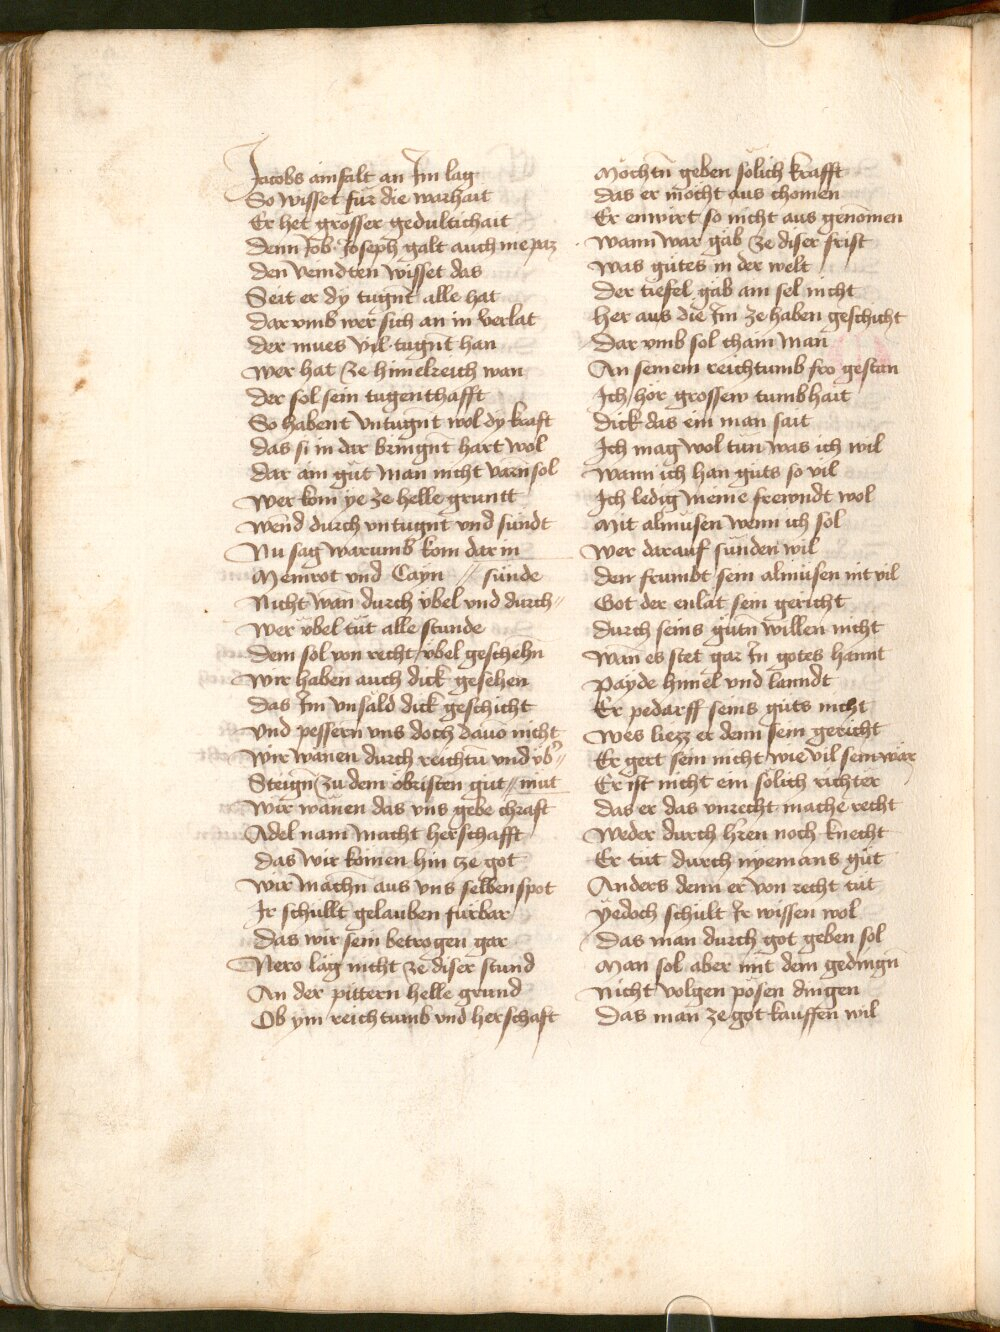 Jacobs ainfalt an Im lag
So wisset für die warhait
Er het grosser gedultichait
Denn Job Joseph galt auch nie paz
den veindten wisset das
Seit er dy tugnt alle hat
dar vmb wer sich an in verlat
der mues vil tugnt han
wer hat ze himelreich wan
der sol sein tugenthafft
So habent vntugnt wol dy kraft
das si in dar bringnt hart wol
dar ain gut man nicht varn sol
wer kom ye ze helle gruntt
wend durch vntugnt vnd sundt
Nu sag warumb kom dar in
Nemrot vnd Cayn // sunde
Nicht wan durch vbel vnd durch //
wer vbel tut alle stunde
dem sol von recht vbel geschehn
wir haben auch dick gesehen
das Im vnsald dick geschicht
vnd pessern vns doch dauo nicht
wir wänen durch reichtu vnd vb' //
Steign zu dem obristen gut // mut
wir wänen das vns gebe chraft
Adel nam macht herschafft
das wir komen hin tze got
wir machn aus vns selben spot
Ir schullt gelauben fürbar
das wir sein betrogen gar
Nero läg nicht ze diser stund
An der pittern helle grund
Ob ym reichtumb vnd herschaft
Möchtn geben solich krafft
das er mocht aus chomen
Er enwirt so nicht aus genomen
wann war gab ze diser frist
was gutes in der welt
der tiefel gab ain sel nicht
her aus die Im ze haben geschicht
Dar vmb sol chain man
An seinem reichtumb fro gestan
Ich hör grossew tumbhait
dick das ein man sait
Ich mag wol tun was ich wil
wann ich han guts so vil
Ich ledig meine frewndt wol
Mit almusen wenn ich sol
wer darauf sunden wil
den frumbt sein almusen nit vil
Got der enlat sein gericht
durch seins gutn willen nicht
wan es stet gar In gotes hannt
Payde himel vnd lanndt
Er pedarff seins guts nicht
wes liezz er denn sein gericht
Er gert sein nicht wie vil sein wär
Er ist nicht ein solich richter
das er das vnrecht mache recht
weder durch hren noch knecht
Er tut durch nyemans gut
Anders denn er von recht tut
yedoch schult Ir wissen wol
das man durch got geben sol
Man sol aber mit dem gedingn
nicht volgen pösen dingen
das man ze got kauffen wil